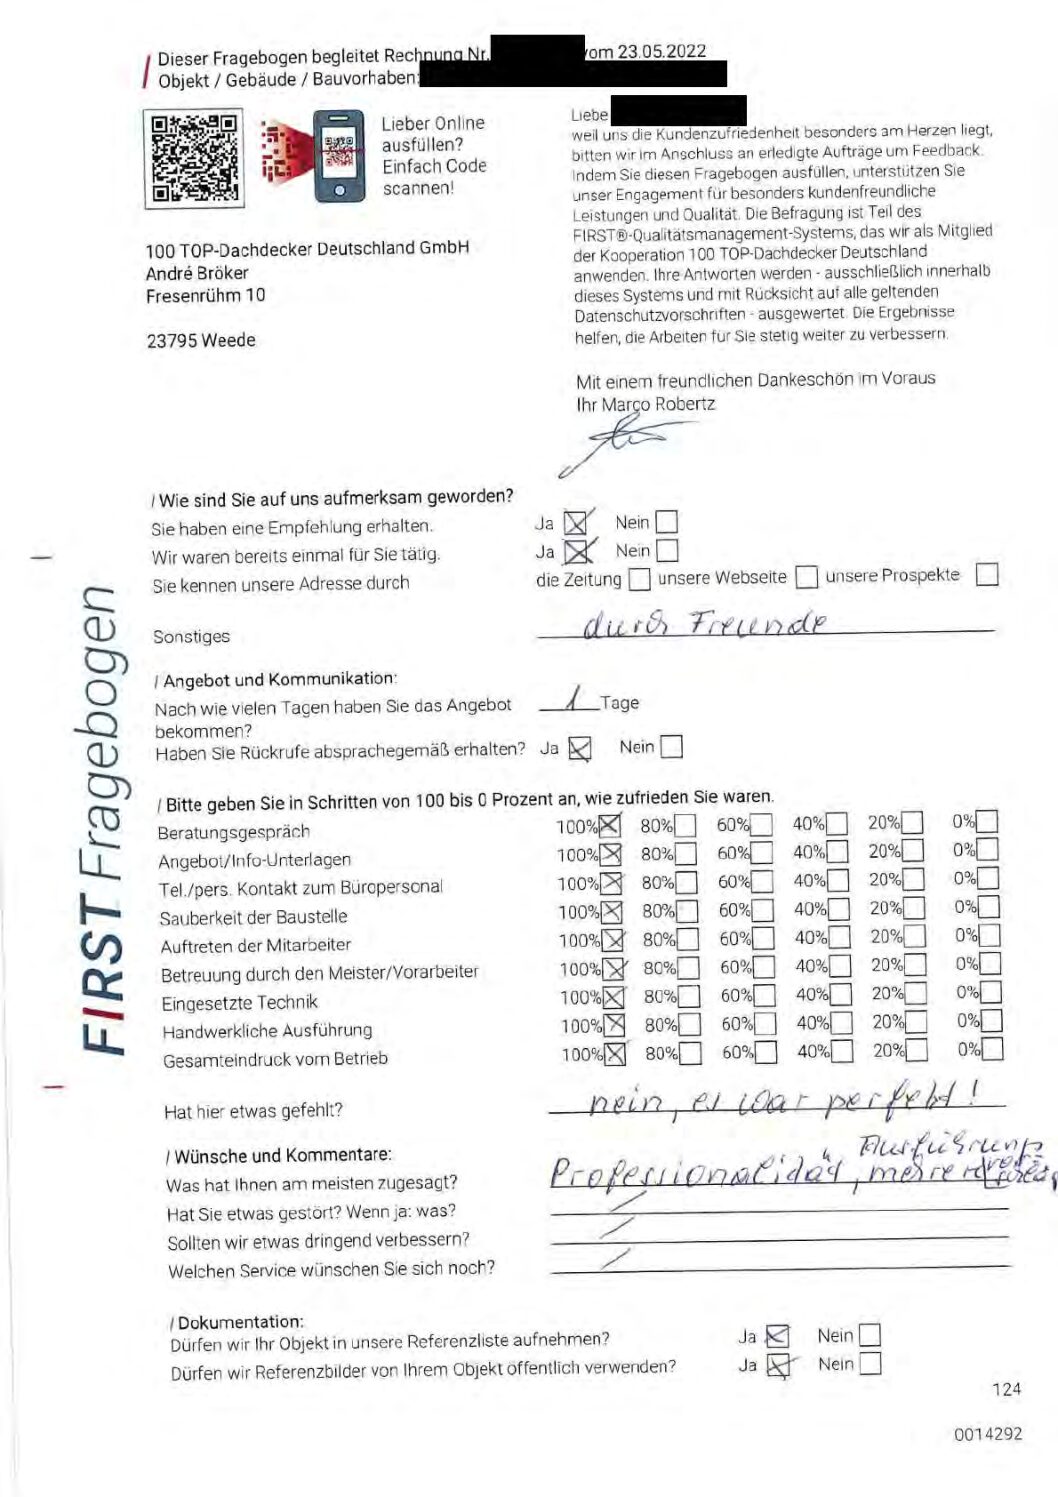 Dieser Fragebogen begleitet Rechnung Nr. vom 23.05.2022
Objekt / Gebäude / Bauvorhaben:
Lieber Online
ausfüllen?
Einfach Code
scannen!
100 TOP-Dachdecker Deutschland GmbH
André Bröker
Fresenrühm 10
23795 Weede
Liebe
weil uns die Kundenzufriedenheit besonders am Herzen liegt,
bitten wir im Anschluss an erledigte Aufträge um Feedback.
Indem Sie diesen Fragebogen ausfüllen, unterstützen Sie
unser Engagement für besonders kundenfreundliche
Leistungen und Qualität. Die Befragung ist Teil des
FIRST®-Qualitätsmanagement-Systems, das wir als Mitglied
der Kooperation 100 TOP-Dachdecker Deutschland
anwenden. Ihre Antworten werden - ausschließlich innerhalb
dieses Systems und mit Rücksicht auf alle geltenden
Datenschutzvorschriften - ausgewertet. Die Ergebnisse
helfen, die Arbeiten für Sie stetig weiter zu verbessern.
Mit einem freundlichen Dankeschön im Voraus
Ihr Marco Robertz
FIRST Fragebogen
/ Wie sind Sie auf uns aufmerksam geworden?
Sie haben eine Empfehlung erhalten. Ja Nein
Wir waren bereits einmal für Sie tätig. Ja Nein
Sie kennen unsere Adresse durch die Zeitung unsere Webseite unsere Prospekte
Sonstiges durch Freunde
/ Angebot und Kommunikation:
Nach wie vielen Tagen haben Sie das Angebot 1 Tage
bekommen?
Haben Sie Rückrufe absprachegemäß erhalten? Ja Nein
/ Bitte geben Sie in Schritten von 100 bis 0 Prozent an, wie zufrieden Sie waren.
Beratungsgespräch 100% 80% 60% 40% 20% 0%
Angebot/Info-Unterlagen 100% 80% 60% 40% 20% 0%
Tel./pers. Kontakt zum Büropersonal 100% 80% 60% 40% 20% 0%
Sauberkeit der Baustelle 100% 80% 60% 40% 20% 0%
Auftreten der Mitarbeiter 100% 80% 60% 40% 20% 0%
Betreuung durch den Meister/Vorarbeiter 100% 80% 60% 40% 20% 0%
Eingesetzte Technik 100% 80% 60% 40% 20% 0%
Handwerkliche Ausführung 100% 80% 60% 40% 20% 0%
Gesamteindruck vom Betrieb 100% 80% 60% 40% 20% 0%
Hat hier etwas gefehlt? nein, es war perfekt!
/ Wünsche und Kommentare:
Ausführung
Was hat Ihnen am meisten zugesagt? Professionalidät,
Hat Sie etwas gestört? Wenn ja: was? /
Sollten wir etwas dringend verbessern? /
Welchen Service wünschen Sie sich noch? /
/ Dokumentation:
Dürfen wir Ihr Objekt in unsere Referenzliste aufnehmen? Ja Nein
Dürfen wir Referenzbilder von Ihrem Objekt öffentlich verwenden? Ja Nein
124
0014292